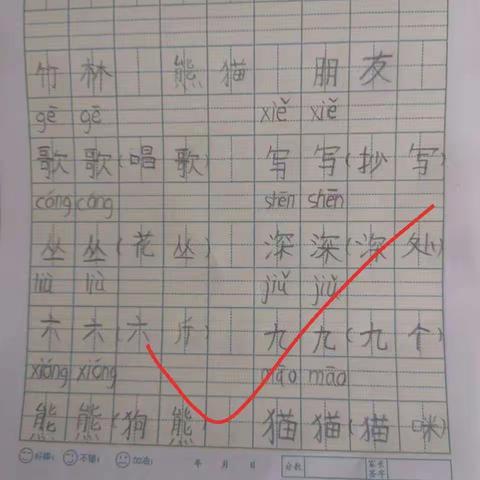 竹 林 熊 猫 朋 友
gē gē xiě xiě
歌 歌(唱 歌) 写 写(抄 写)
cóng cóng shēn shēn
丛 丛(花 丛) 深 深(深 处)
liù liù jiǔ jiǔ
六 六(六 斤) 九 九(九 个)
xióng xióng māo māo
熊 熊(狗 熊) 猫 猫(猫 咪)
不错! 加油! 年 月 日 分数 家长签字